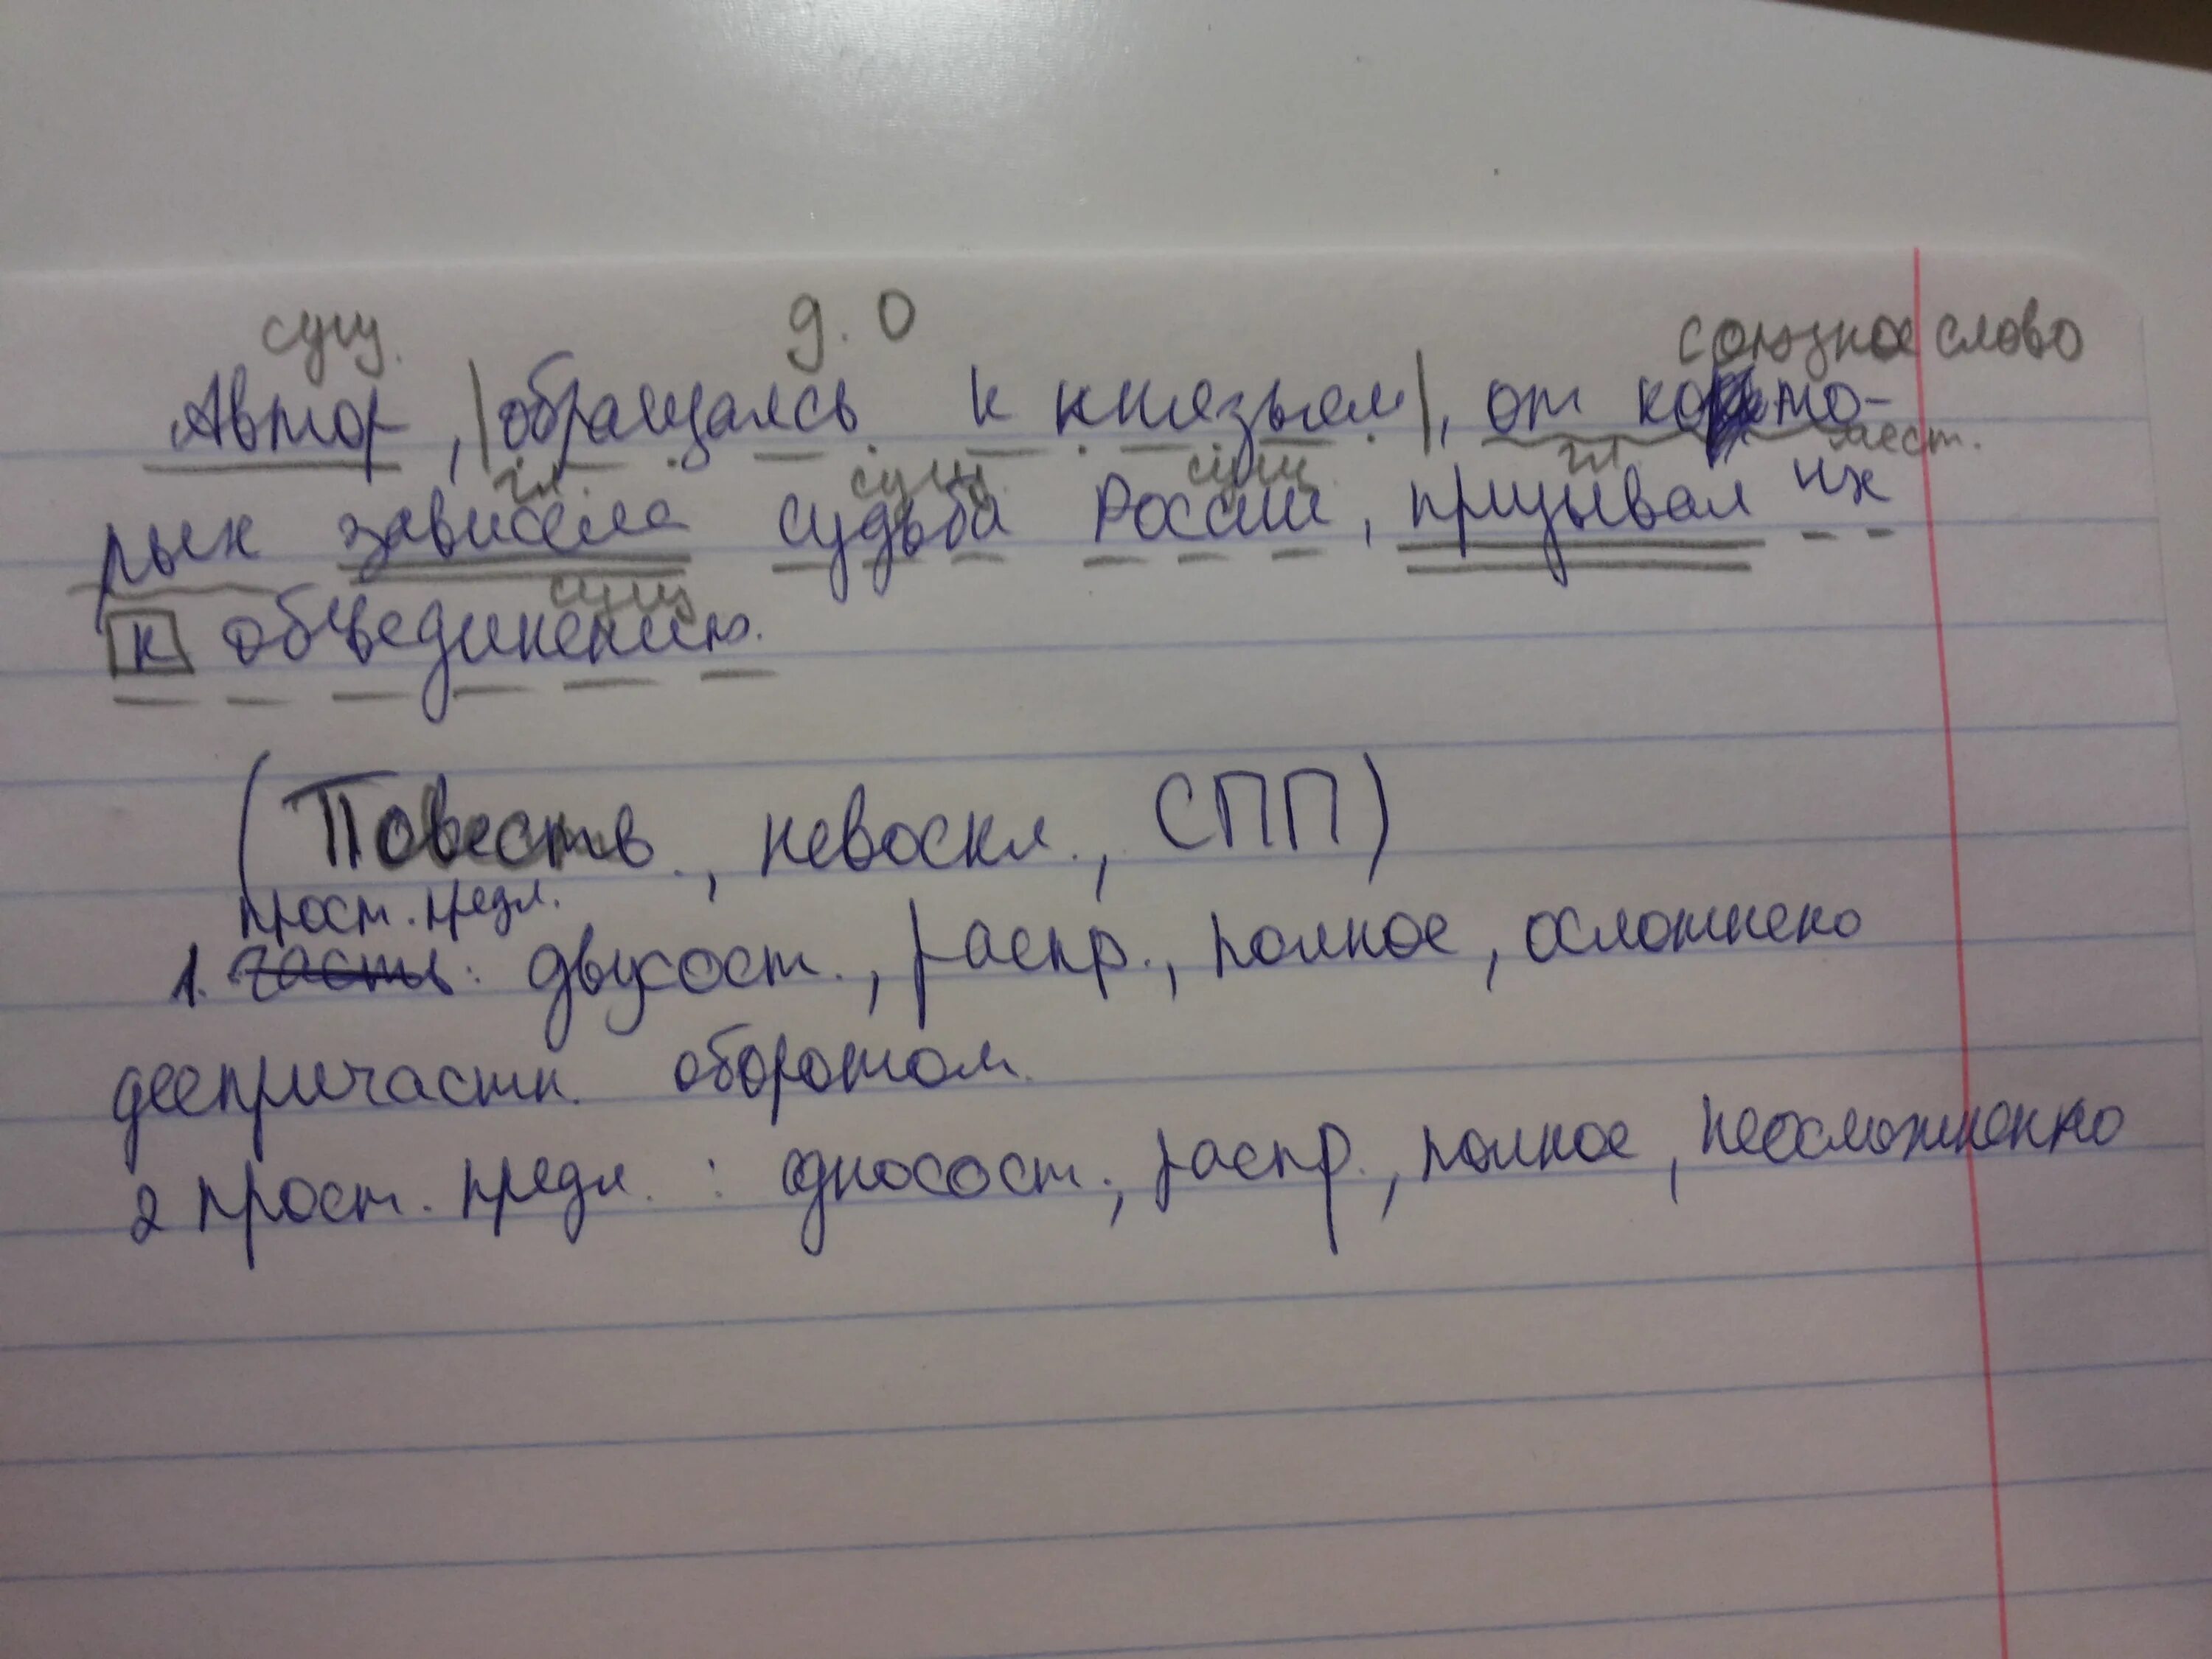 сущ. д. о союзное слово
Автор, |обращаясь к князьям|, от кото-
гл. сущ. сущ. гл мест.
рых зависела судьба России, призывал их
сущ
к объединению.
(Повеств., невоскл., СПП)
прост. предл.
1. часть: двусост., распр., полное, осложнено
деепричастн. оборотом.
2 прост. предл. : односост., распр., полное, неосложненно